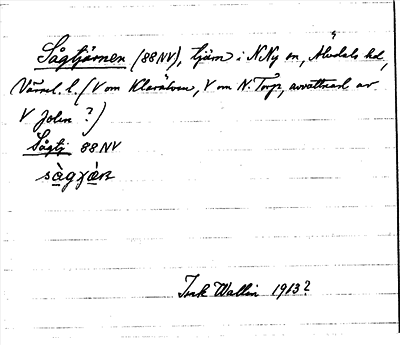 Sågtjärnen (88NV), tjärn i N Ny sn, Älvdals hd,
Värml. l. (V om Klarälven, V om N. Torp, avvattnad av
V Jolen ?)
Sågtj 88 NV
Wallin 1913?